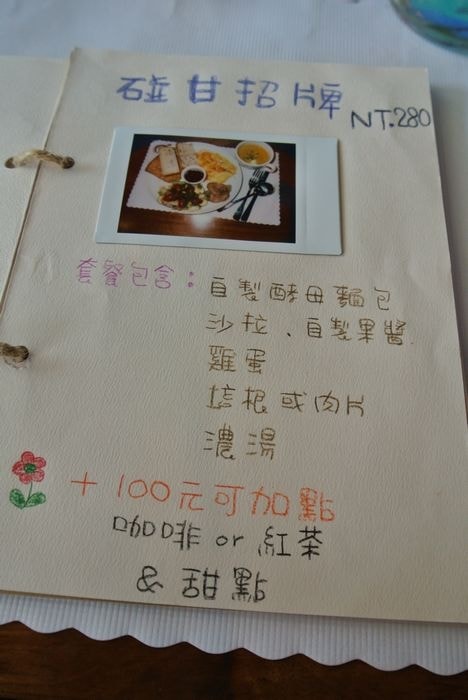 碰甘招牌
NT.280
套餐包含：自製酵母麵包
沙拉、自製果醬
雞蛋
培根或肉片
濃湯
+100元可加點
咖啡 or 紅茶
& 甜點